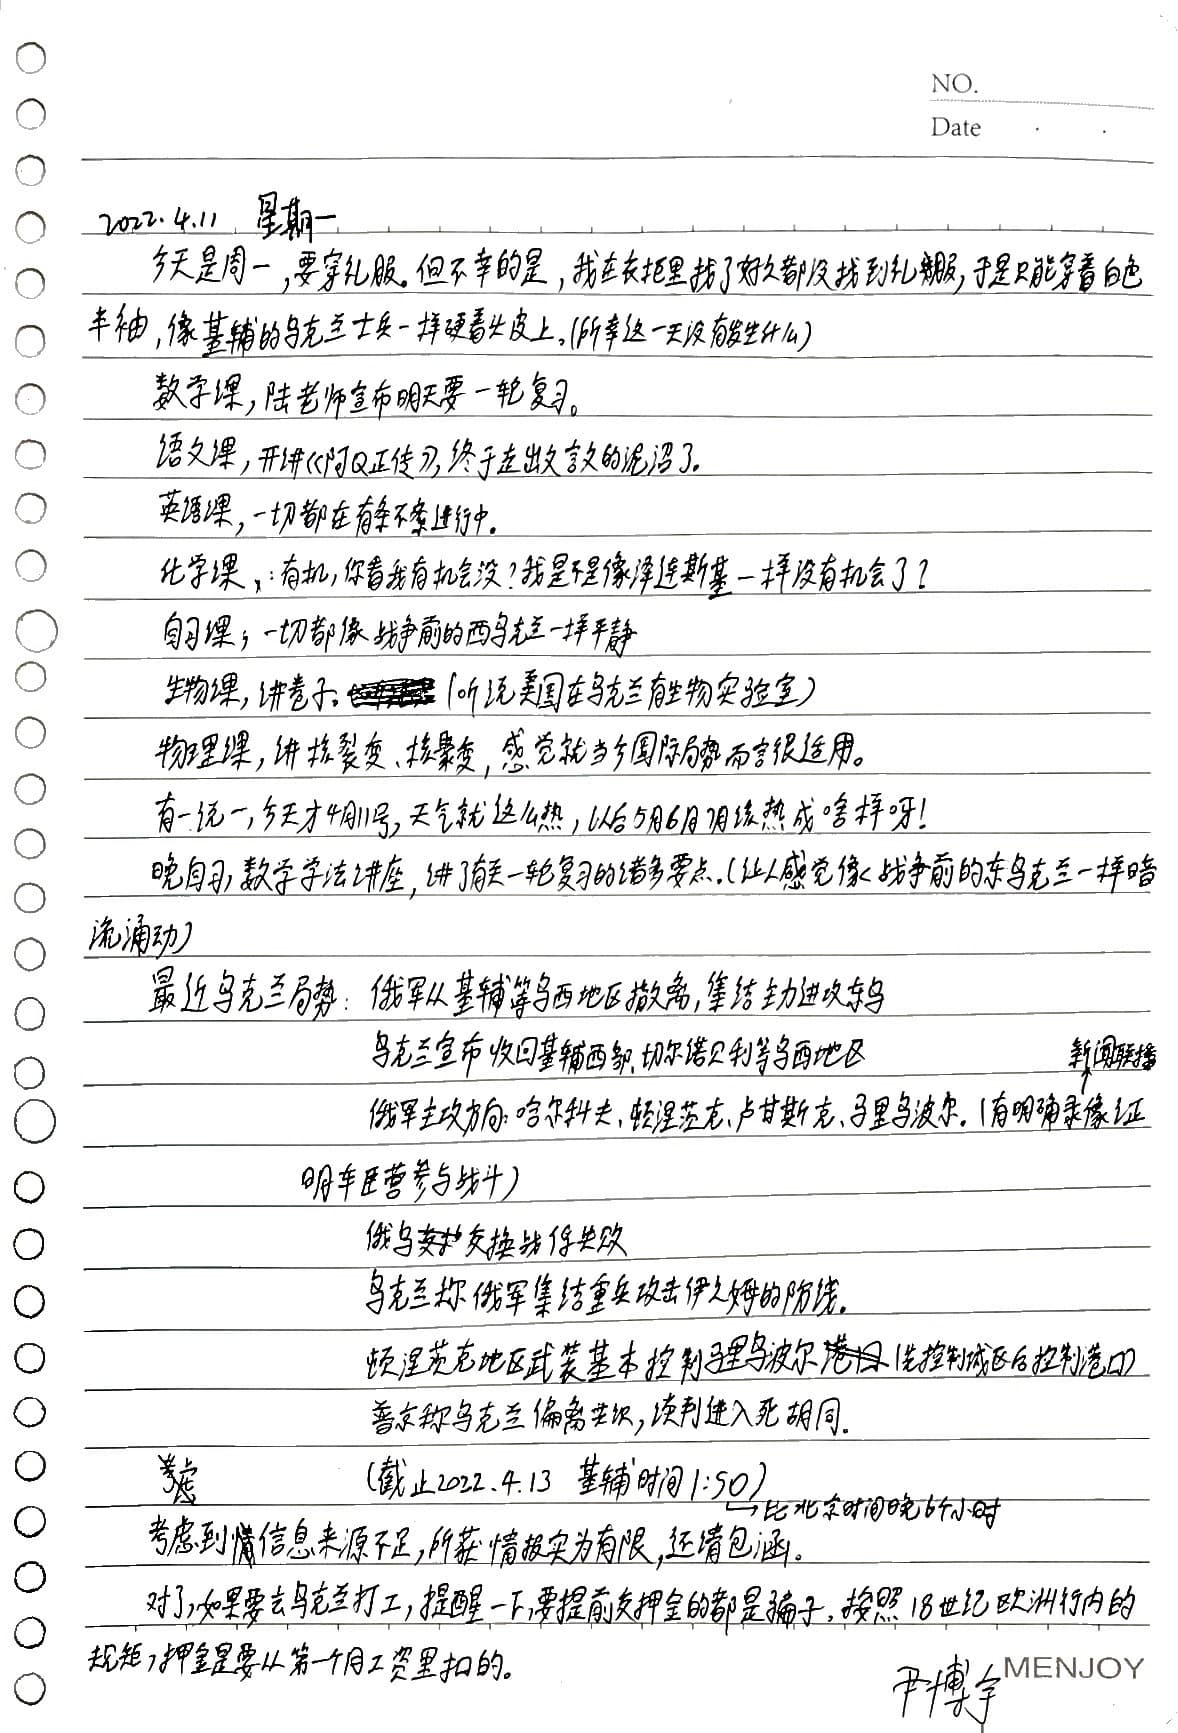 NO.
Date
2022.4.11 星期一
今天是周一,要穿礼服。但不幸的是,我在衣柜里找了好久都没找到礼服,于是只能穿着白色
半袖,像基辅的乌克兰士兵一样硬着头皮上。(所幸这一天没有发生什么)
数学课,陆老师宣布明天要一轮复习。
语文课,开讲《阿Q正传》,终于走出文言文的泥沼了。
英语课,一切都在有条不紊进行中。
化学课:有机,你看我有机会没?我是不是像泽连斯基一样没有机会了?
自习课,一切都像战争前的西乌克兰一样平静
生物课,讲卷子。(听说美国在乌克兰有生物实验室)
物理课,讲核裂变、核聚变,感觉就当今国际局势而言很适用。
有一说一,今天才4月11号,天气就这么热,以后5月6月7月该热成啥样呀!
晚自习,数学学法讲座,讲了有关一轮复习的诸多要点。(让人感觉像战争前的东乌克兰一样暗
流涌动)
最近乌克兰局势:俄军从基辅等乌西地区撤离,集结主力进攻东乌
乌克兰宣布收回基辅西部、切尔诺贝利等乌西地区
新闻联播
俄军主攻方向:哈尔科夫、顿涅茨克、卢甘斯克、马里乌波尔。(有明确录像证
明车臣营参与战斗)
俄乌交换战俘失败
乌克兰称俄军集结重兵攻击伊久姆的防线。
顿涅茨克地区武装基本控制马里乌波尔(先控制城区后控制港口)
普京称乌克兰偏离共识,谈判进入死胡同。
考虑 (截止2022.4.13 基辅时间1:50)
→比北京时间晚6个小时
考虑到信息来源不足,所获情报实为有限,还请包涵。
对了,如果要去乌克兰打工,提醒一下,要提前交押金的都是骗子,按照18世纪欧洲行内的
规矩,押金是要从第一个月工资里扣的。
尹博宇
MENJOY